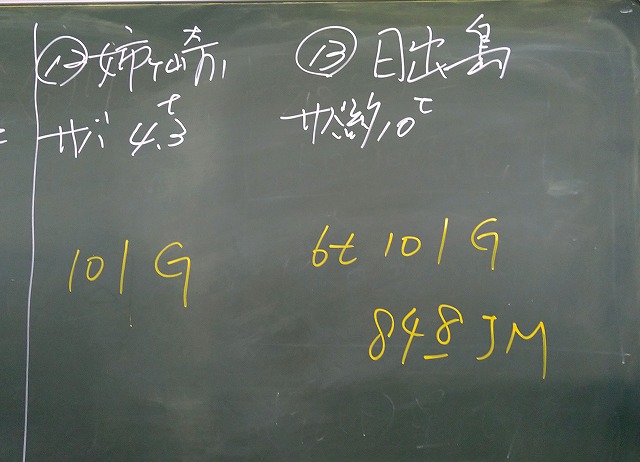 ⑫ 姉ヶ崎
サバ 4.3t
101 G
⑬ 日出島
サバ約10t
6t 101 G
848 JM